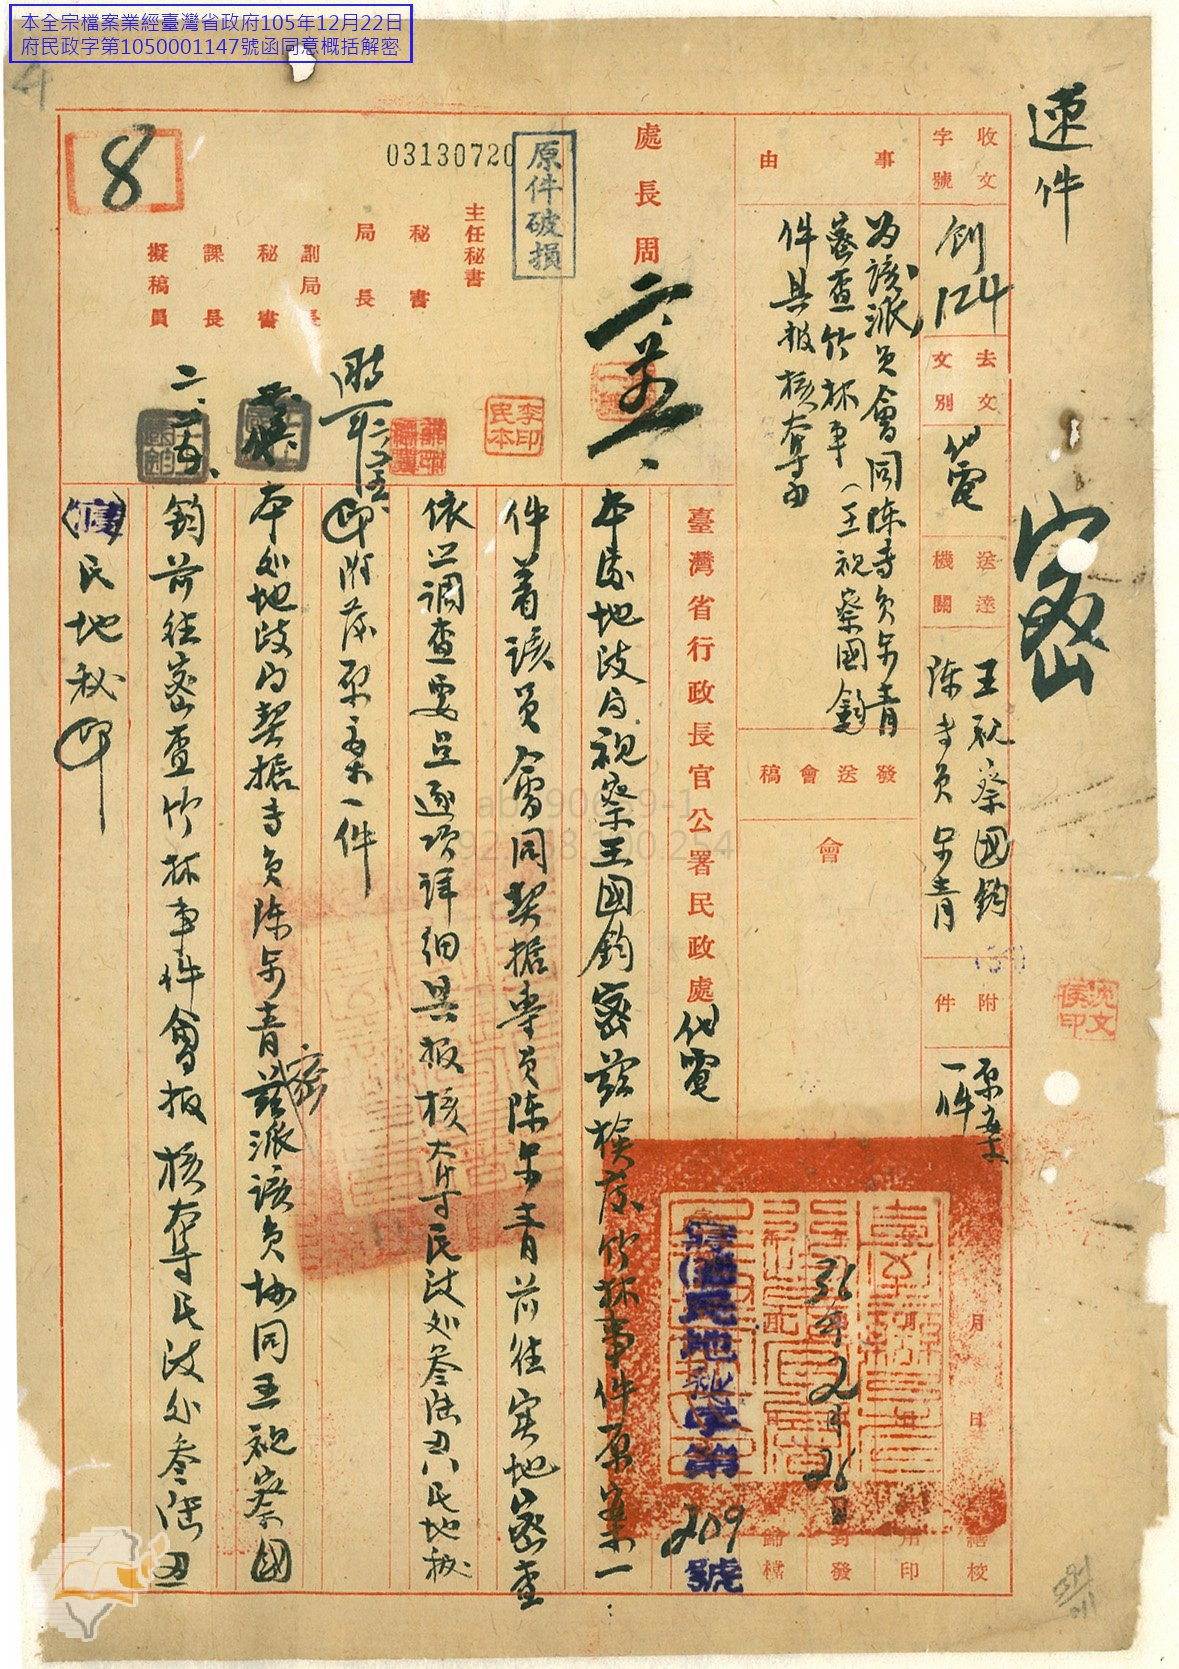 本全宗檔案業經臺灣省政府105年12月22日
府民政字第1050001147號函同意概括解密
速件
密
收文字號
創124
去文文別
代電
送達機關
王視察國鈞
陳專員
附件
原案一件
事由
為該派員會同陳專員
密查竹林事件(王視察國鈞
件具報核奪由
發送會稿
會
處長周
原件破損
03130720
主任秘書
秘書
局長
副局長
秘書
課長
擬稿員
8
李印民本
沈文
臺灣省行政長官公署民政處代電
本處地政局視察王國鈞密茲檢發竹林事件原案一
件着該員會同契據專員陳 青前往實地密查
依 調查要旨逐項詳細具報核奪民政處叁陸丑 民地秘
印附發原案一件
本處地政局契據專員陳 青密茲派該員協同王視察國
鈞前往密查竹林事件會報核奪民政處叁陸丑
民地秘印
36年2月26日
民地秘字第209號
月日
繕校
用印
封發
歸檔